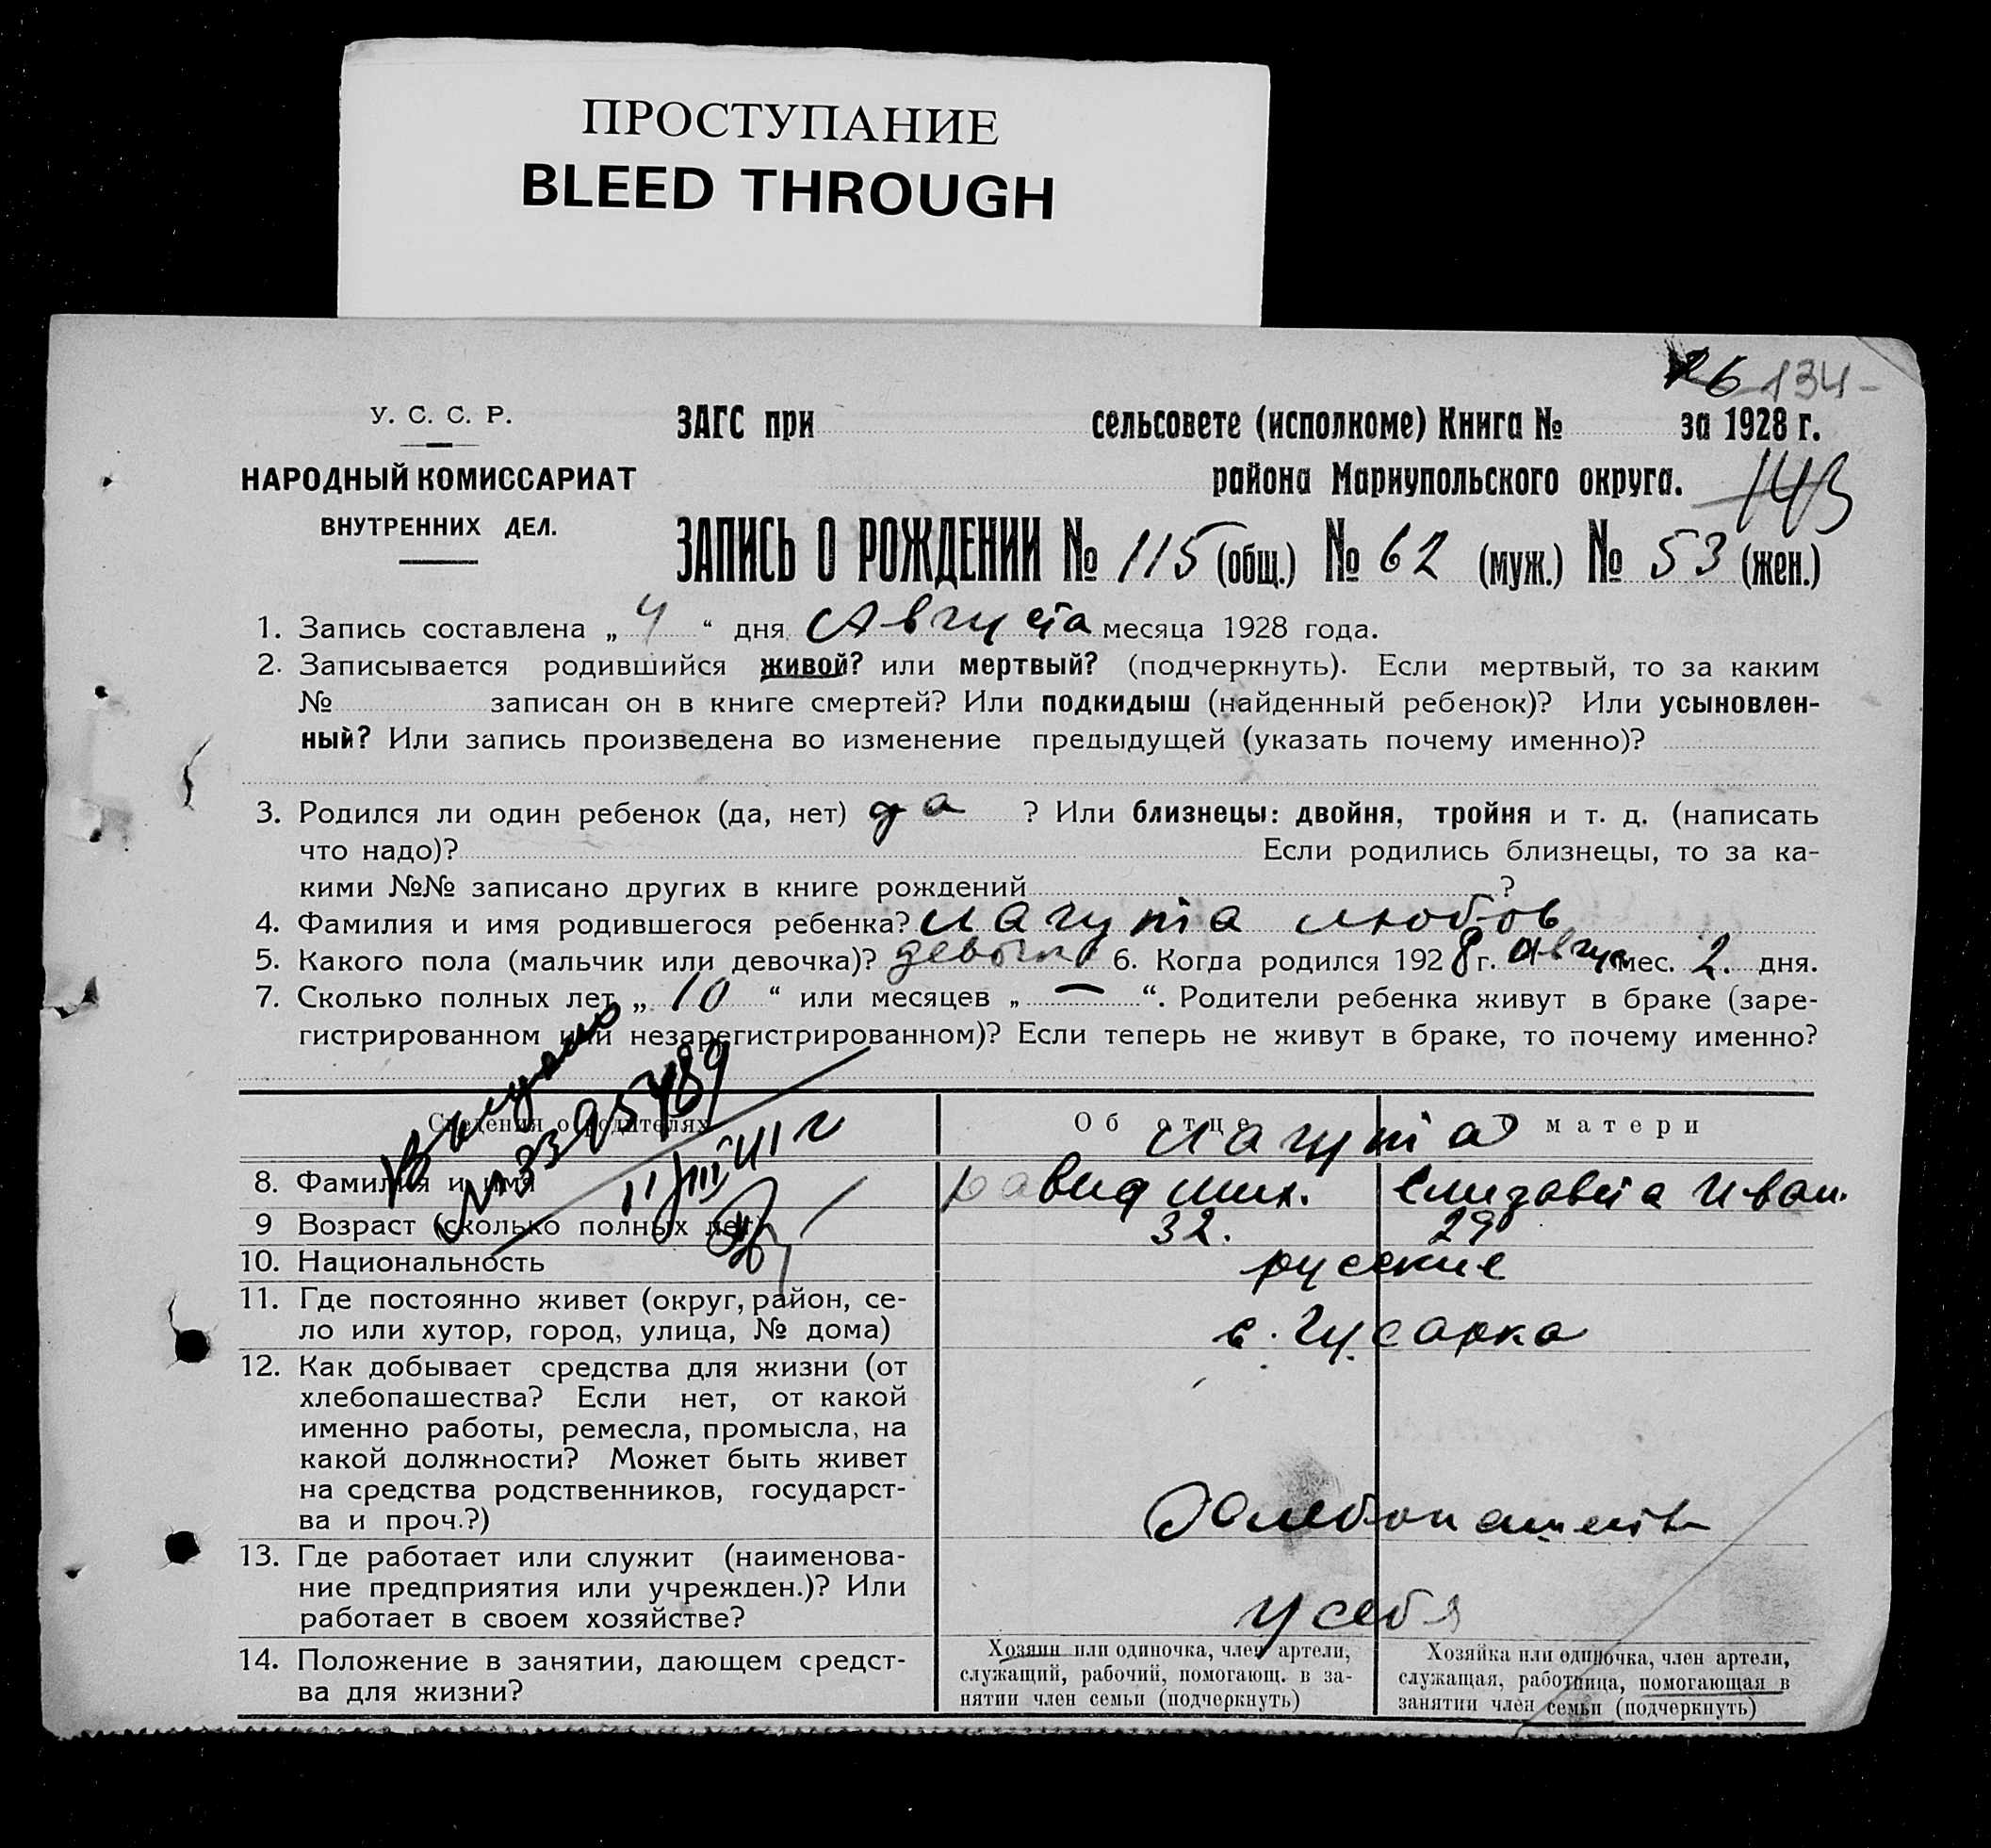 ПРОСТУПАНИЕ
BLEED THROUGH
134
У. С. С. Р.
НАРОДНЫЙ КОМИССАРИАТ
ВНУТРЕННИХ ДЕЛ.
ЗАГС при сельсовете (исполкоме) Книга № за 1928 г.
района Мариупольского округа.
143
ЗАПИСЬ О РОЖДЕНИИ № 115 (общ.) № 62 (муж.) № 53 (жен.)
1. Запись составлена „ 4 “ дня Августа месяца 1928 года.
2. Записывается родившийся живой? или мертвый? (подчеркнуть). Если мертвый, то за каким
№ записан он в книге смертей? Или подкидыш (найденный ребенок)? Или усыновлен-
ный? Или запись произведена во изменение предыдущей (указать почему именно)?
3. Родился ли один ребенок (да, нет) да ? Или близнецы: двойня, тройня и т. д. (написать
что надо)? Если родились близнецы, то за ка-
кими №№ записано других в книге рождений ?
4. Фамилия и имя родившегося ребенка? Лагута Любов
5. Какого пола (мальчик или девочка)? девочка 6. Когда родился 1928 г. Авгус мес. 2. дня.
7. Сколько полных лет „ 10 “ или месяцев „ — “. Родители ребенка живут в браке (заре-
гистрированном или незарегистрированном)? Если теперь не живут в браке, то почему именно?
Сведения о родителях
Об отце
О матери
Лагута
8. Фамилия и имя
Давид Мих.
Елизавета Иван.
9 Возраст (сколько полных лет)
32.
29
10. Национальность
русские
11. Где постоянно живет (округ, район, се-
ло или хутор, город, улица, № дома)
с. Гусарка
12. Как добывает средства для жизни (от
хлебопашества? Если нет, от какой
именно работы, ремесла, промысла, на
какой должности? Может быть живет
на средства родственников, государст-
ва и проч.?)
Хлебопашеств
13. Где работает или служит (наименова-
ние предприятия или учрежден.)? Или
работает в своем хозяйстве?
у себя
14. Положение в занятии, дающем средст-
ва для жизни?
Хозяин или одиночка, член артели,
служащий, рабочий, помогающ. в за-
нятии член семьи (подчеркнуть)
Хозяйка или одиночка, член артели,
служащая, работница, помогающая в
занятии член семьи (подчеркнуть)